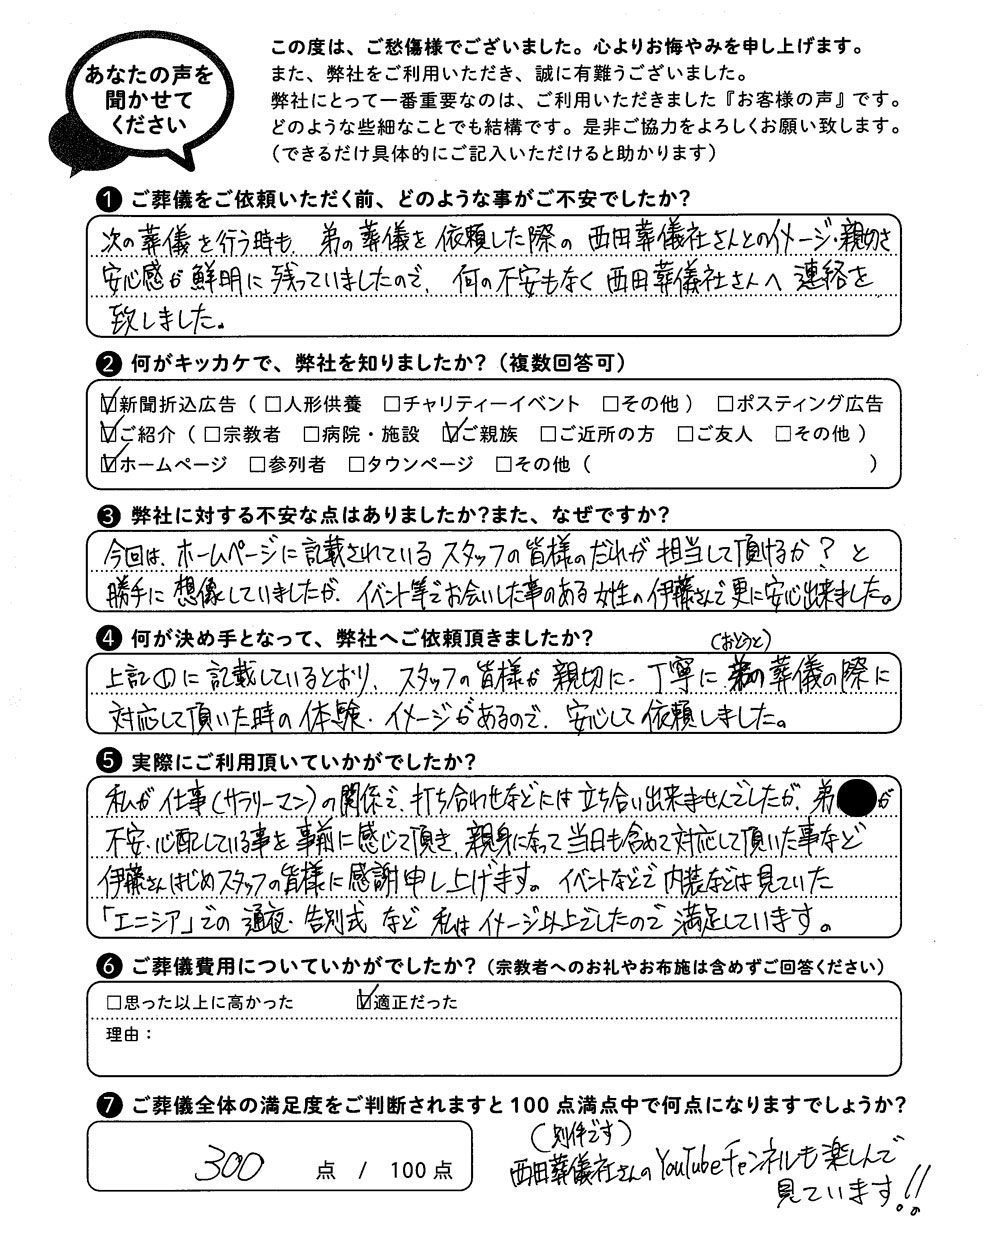 あなたの声を
聞かせて
ください
この度は、ご愁傷様でございました。心よりお悔やみを申し上げます。
また、弊社をご利用いただき、誠に有難うございました。
弊社にとって一番重要なのは、ご利用いただきました『お客様の声』です。
どのような些細なことでも結構です。是非ご協力をよろしくお願い致します。
(できるだけ具体的にご記入いただけると助かります)
❶ ご葬儀をご依頼いただく前、どのような事がご不安でしたか?
次の葬儀を行う時も、弟の葬儀を依頼した際の西田葬儀社さんとのイメージ・親切さ
安心感が鮮明に残っていましたので、何の不安もなく西田葬儀社さんへ連絡を
致しました。
❷ 何がキッカケで、弊社を知りましたか?(複数回答可)
☑新聞折込広告(□人形供養 □チャリティーイベント □その他) □ポスティング広告
☑ご紹介(□宗教者 □病院・施設 ☑ご親族 □ご近所の方 □ご友人 □その他)
☑ホームページ □参列者 □タウンページ □その他( )
❸ 弊社に対する不安な点はありましたか?また、なぜですか?
今回は、ホームページに記載されているスタッフの皆様のだれが担当して頂けるか?と
勝手に想像していましたが、イベント等でお会いした事のある女性の伊藤さんで更に安心出来ました。
❹ 何が決め手となって、弊社へご依頼頂きましたか?
(おとうと)
上記①に記載しているとおり、スタッフの皆様が親切に、丁寧に弟の葬儀の際に
対応して頂いた時の体験・イメージがあるので、安心して依頼しました。
❺ 実際にご利用頂いていかがでしたか?
私が仕事(サラリーマン)の関係で、打ち合わせなどには立ち合い出来ませんでしたが、弟 が
不安・心配している事を事前に感じて頂き、親身になって当日も含めて対応して頂いた事など
伊藤さんはじめスタッフの皆様に感謝申し上げます。イベントなどで内装などは見ていた
「エニシア」での通夜・告別式など私はイメージ以上でしたので満足しています。
❻ ご葬儀費用についていかがでしたか?(宗教者へのお礼やお布施は含めずご回答ください)
□思った以上に高かった ☑適正だった
理由：
❼ ご葬儀全体の満足度をご判断されますと100点満点中で何点になりますでしょうか?
300 点 / 100点
(別件です)
西田葬儀社さんのYouTubeチャンネルも楽しんで
見ています!!